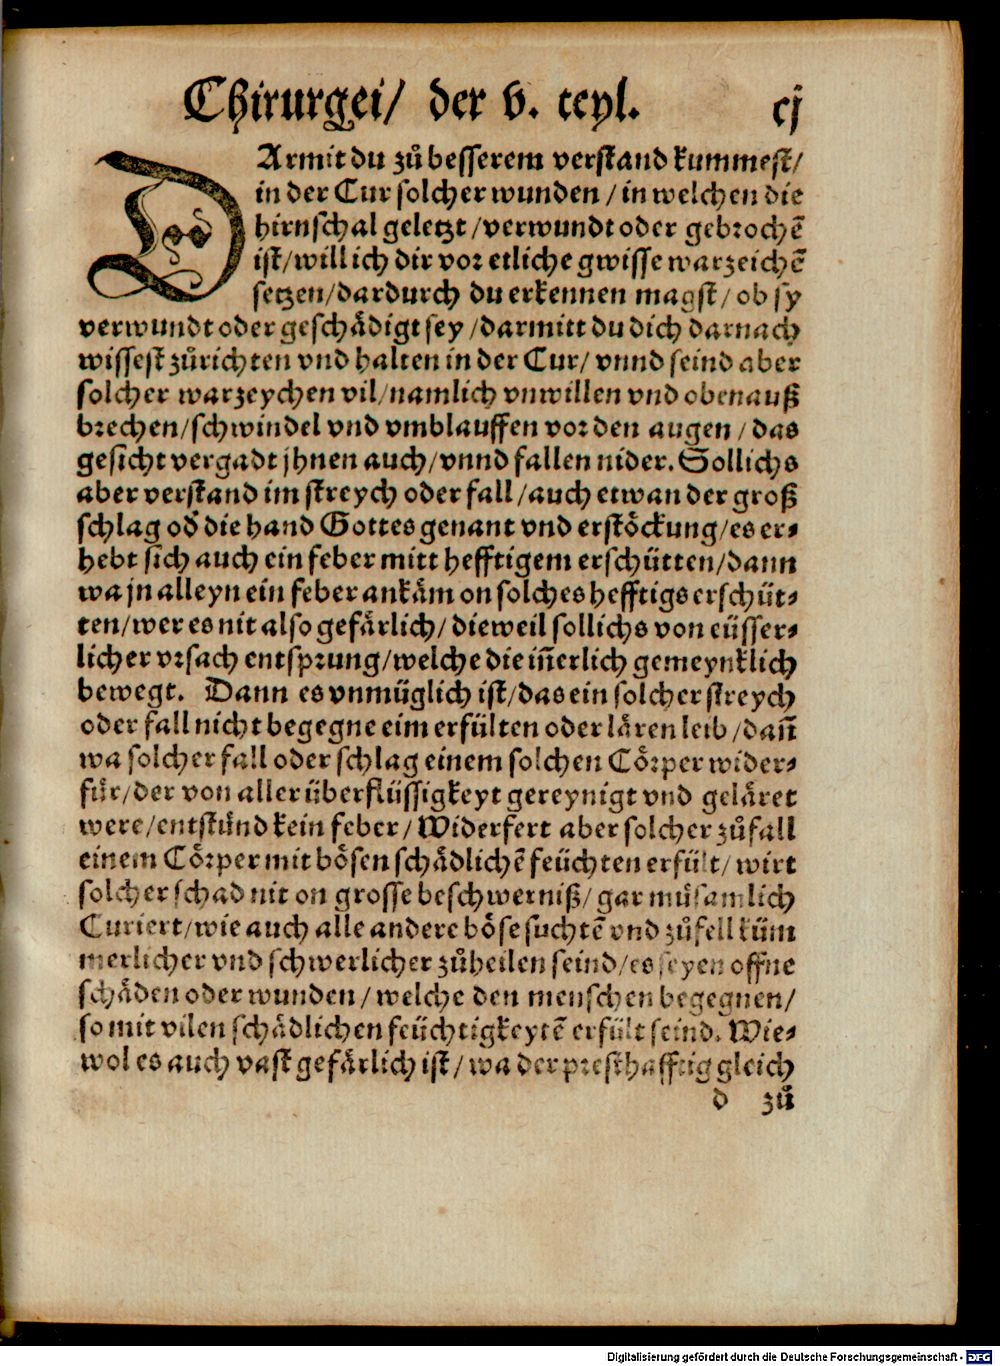 Chirurgei/ der v. teyl. cj
DArmit du zů besserem verstand kummest/
in der Cur solcher wunden / in welchen die
hirnschal geletzt / verwundt oder gebrochē
ist/ will ich dir vor etliche gwisse warzeichē
setzen/dardurch du erkennen magst/ ob sy
verwundt oder geschädigt sey /darmitt du dich darnach
wissest zůrichten vnd halten in der Cur/ vnnd seind aber
solcher warzeychen vil/namlich vnwillen vnd obenauß
brechen/schwindel vnd vmblauffen vor den augen / das
gesicht vergadt jhnen auch/vnnd fallen nider. Sollichs
aber verstand im streych oder fall /auch etwan der groß
schlag od̕ die hand Gottes genant vnd erstöckung/es er⸗
hebt sich auch ein feber mitt hefftigem erschütten/dann
wa jn alleyn ein feber ankäm on solches hefftigs erschüt⸗
ten/wer es nit also gefärlich/ dieweil sollichs von eüsser⸗
licher vrsach entsprung/welche die iñerlich gemeynklich
bewegt. Dann es vnmüglich ist/das ein solcher streych
oder fall nicht begegne eim erfülten oder lären leib /dañ
wa solcher fall oder schlag einem solchen Cörper wider⸗
für/der von aller überflüssigkeyt gereynigt vnd geläret
were/entstünd kein feber/ Widerfert aber solcher zůfall
einem Cörper mit bösen schädlichē feüchten erfült/ wirt
solcher schad nit on grosse beschwerniß/ gar můsamlich
Curiert/wie auch alle andere böse suchtē vnd zůfell küm
merlicher vnd schwerlicher zůheilen seind/es seyen offne
schäden oder wunden / welche den menschen begegnen/
so mit vilen schädlichen feüchtigkeytē erfült seind. Wie⸗
wol es auch vast gefärlich ist / wa der presthafftig gleich
d zů
Digitalisierung gefördert durch die Deutsche Forschungsgemeinschaft - DFG